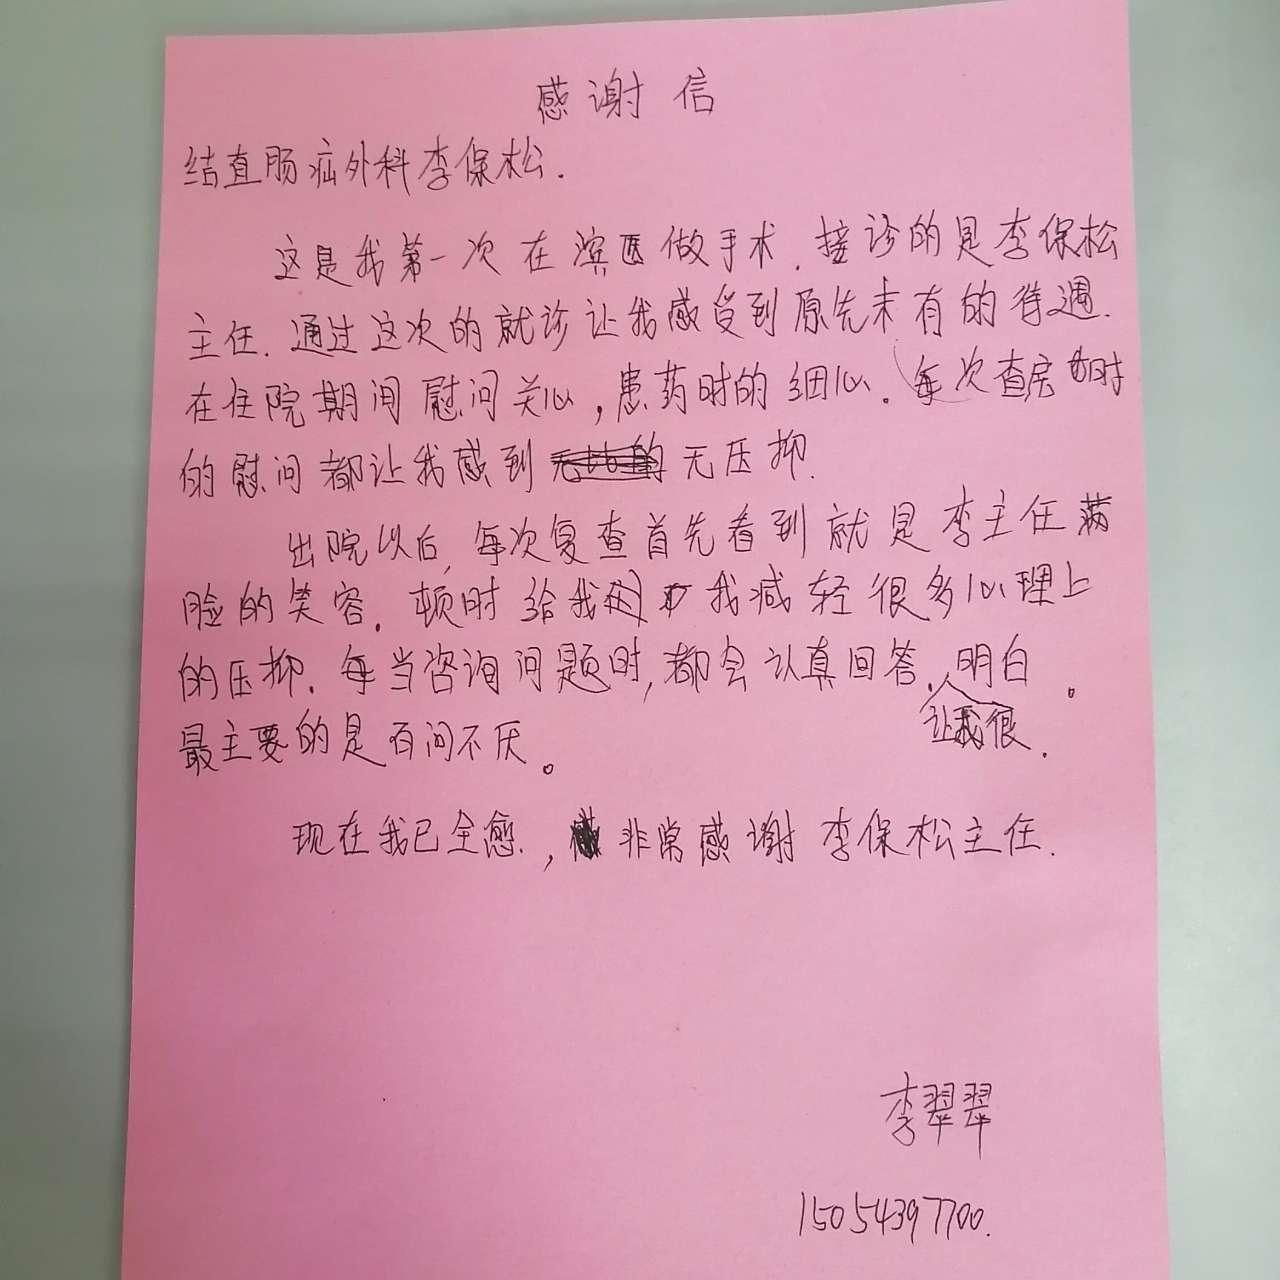 感谢信
结直肠疝外科李保松.
这是我第一次在滨医做手术.接诊的是李保松
主任.通过这次的就诊让我感受到原先未有的待遇.
在住院期间慰问关心,患药时的细心.每次查房时
的慰问都让我感到无压抑.
出院以后,每次复查首先看到就是李主任满
脸的笑容.顿时给我我减轻很多心理上
的压抑.每当咨询问题时,都会认真回答.明白。
让我很.
最主要的是百问不厌。
现在我已全愈,非常感谢李保松主任.
李翠翠
15054397700.